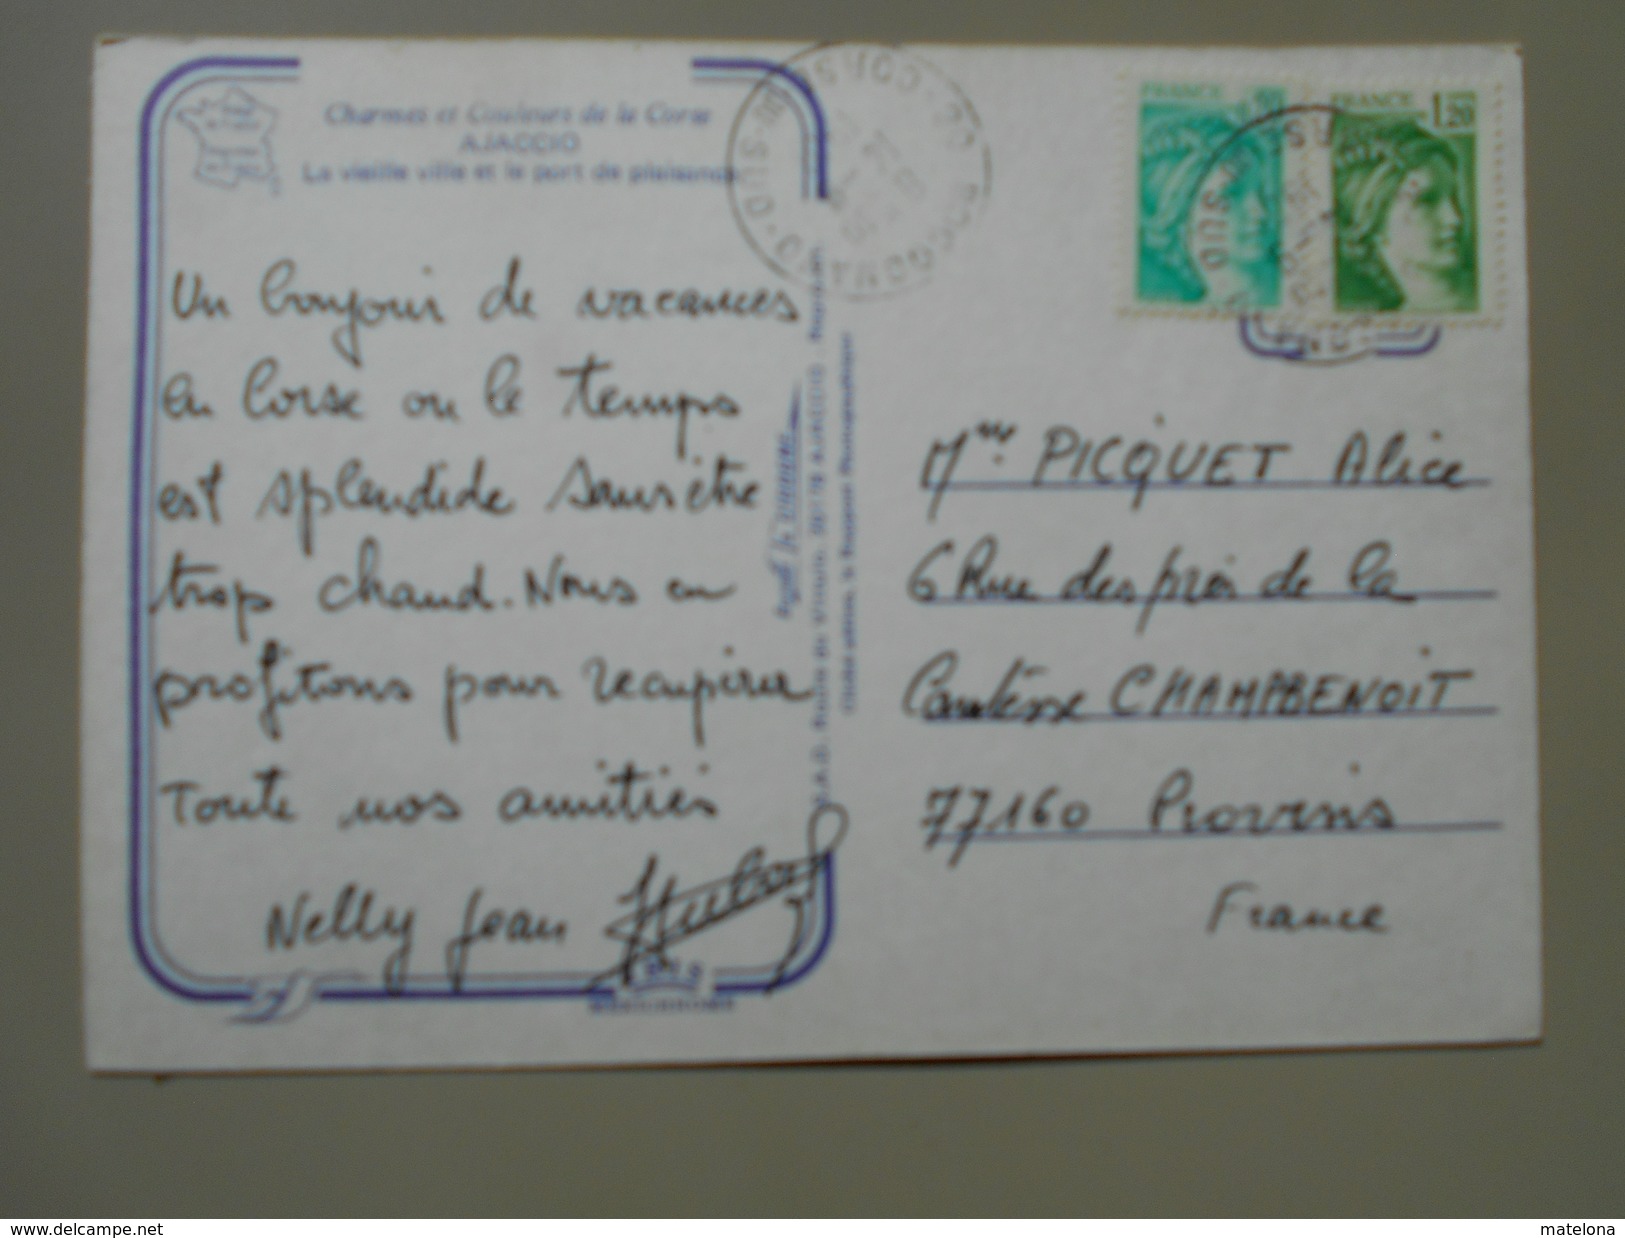 Charmes et Couleurs de la Corse
AJACCIO
La vieille ville et le port de plaisance
Un bonjour de vacances
en Corse ou le temps
est splendide sans être
trop chaud. Nous en
profitons pour recupérer
Toute nos amitiés
Nelly Jean
FRANCE
FRANCE
1,20
Mme PICQUET Alice
6 Rue des près de la
Comtesse CHAMPBENOIT
77160 Provins
France
www.delcampe.net
matelona